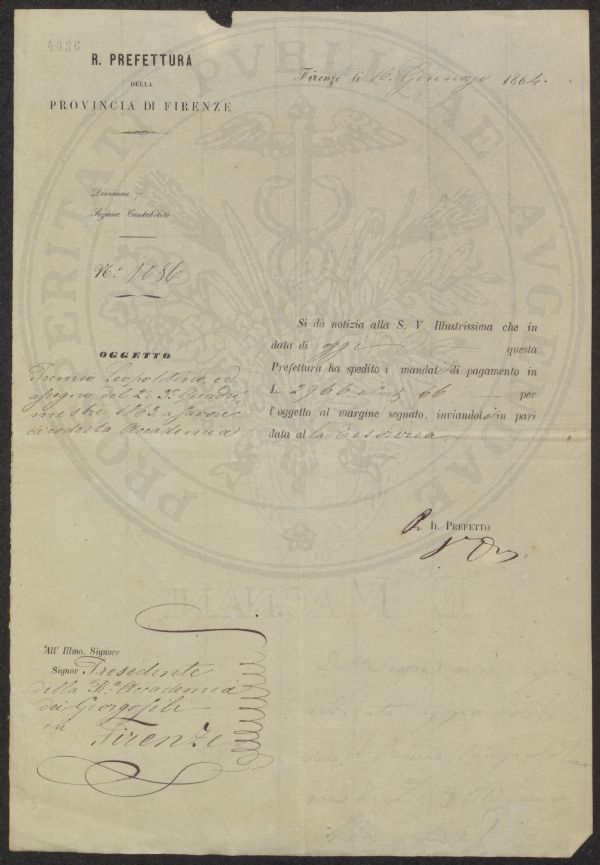 4036
R. PREFETTURA
DELLA
PROVINCIA DI FIRENZE
Firenze li 16. Gennajo 1864.
Divisione 7ª
Sezione Contabilità
N.º 1086
OGGETTO
Premio Leopoldino, ed
assegno del 2º e 3º Quadri
mestre 1863 a favore
di codesta Accademia
Si dà notizia alla S. V. Illustrissima che in
data di oggi questa
Prefettura ha spedito i mandati di pagamento in
L. 2966 Cent. 66 — per
l'oggetto al margine segnato, inviandoli in pari
data alla Tesoreria
P. IL PREFETTO
All' Illmo. Signore
Signor Presidente
della R.ª Accademia
dei Georgofili
in Firenze
PROSPERITATI PVBLICAE AVGENDAE